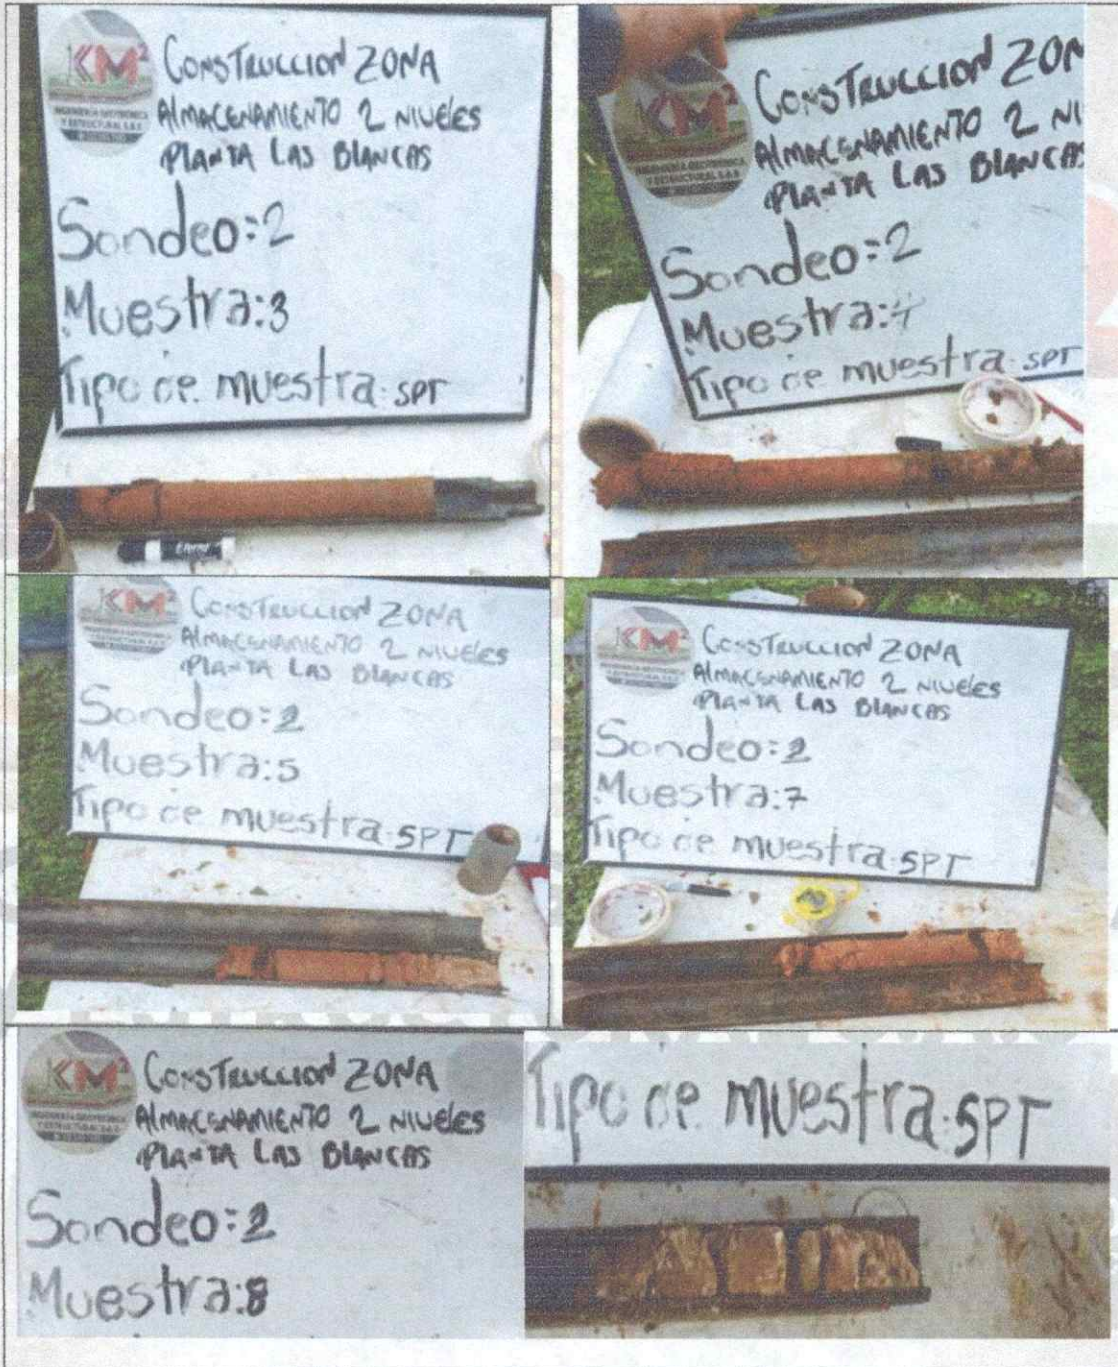 KM²
INGENIERIA GEOTECNICA
Y ESTRUCTURAL S.A.S
CONSTRUCCION ZONA
ALMACENAMIENTO 2 NIVELES
PLANTA LAS BLANCAS
Sondeo:2
Muestra:3
Tipo de muestra:SPT
KM²
INGENIERIA GEOTECNICA
Y ESTRUCTURAL S.A.S
CONSTRUCCION ZON
ALMACENAMIENTO 2 NI
PLANTA LAS BLANCAS
Sondeo:2
Muestra:4
Tipo de muestra:SPT
KM²
CONSTRUCCION ZONA
ALMACENAMIENTO 2 NIVELES
PLANTA LAS BLANCAS
Sondeo:2
Muestra:5
Tipo de muestra:SPT
KM²
CONSTRUCCION ZONA
ALMACENAMIENTO 2 NIVELES
PLANTA LAS BLANCAS
Sondeo:2
Muestra:7
Tipo de muestra:SPT
KM²
INGENIERIA GEOTECNICA
Y ESTRUCTURAL S.A.S
CONSTRUCCION ZONA
ALMACENAMIENTO 2 NIVELES
PLANTA LAS BLANCAS
Sondeo:2
Muestra:8
Tipo de muestra:SPT